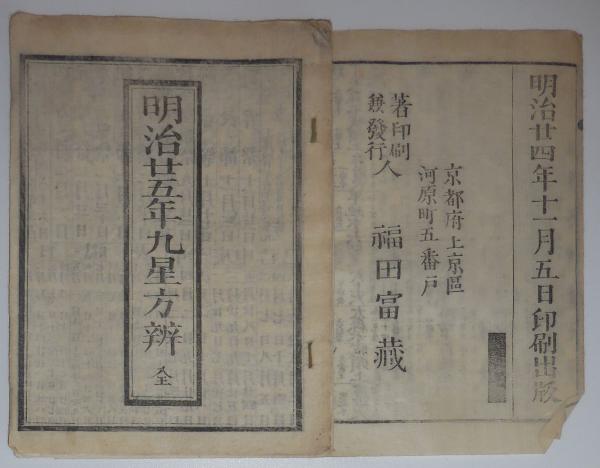 明治廿四年十一月五日印刷出版
京都府上京區
河原町五番戸
著印刷
兼發行人
福田富藏
明治廿五年九星方辨 全